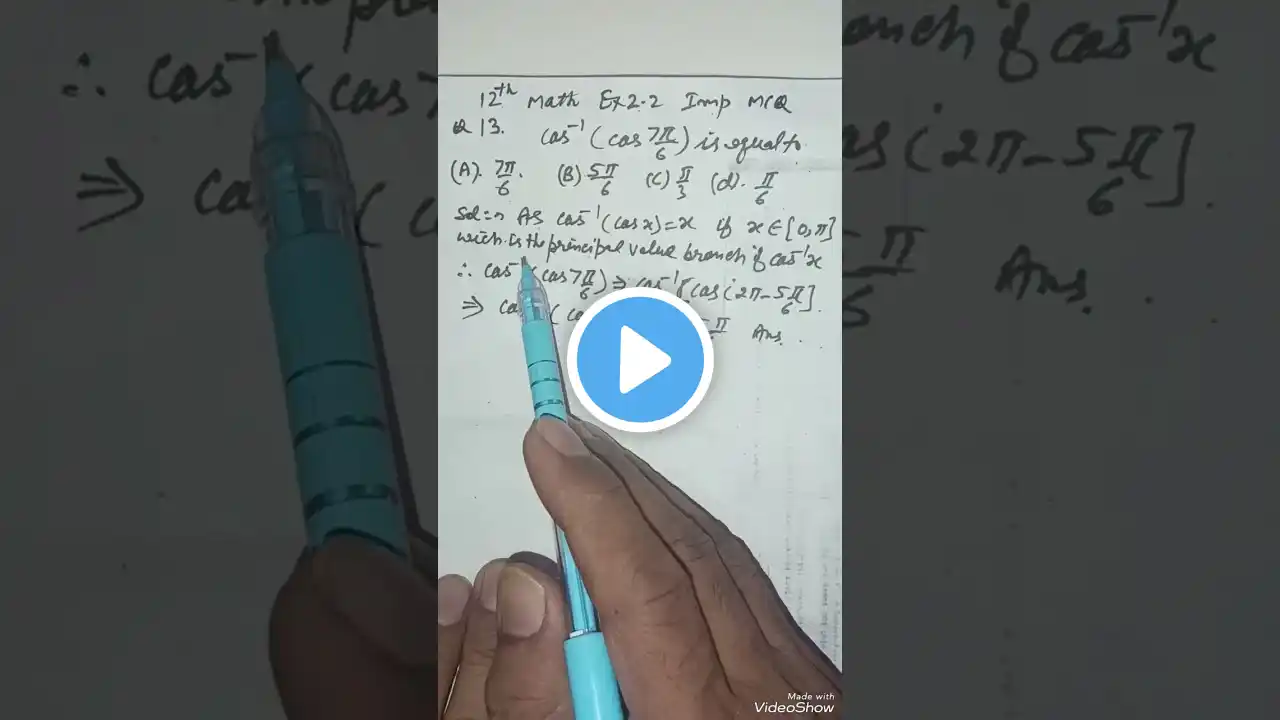 12th Math Ex 2.2 Imp MCQ
Q 13. cos⁻¹(cos 7π/6) is equal to
(A). 7π/6. (B) 5π/6 (C) π/3 (d). π/6
Sol:→ As cos⁻¹(cos x) = x if x ∈ [0, π]
wich is the principal value branch of cos⁻¹x
∴ cos⁻¹(cos 7π/6) ⇒ cos⁻¹[cos(2π - 5π/6].
⇒ π Ans.
Made with
VideoShow